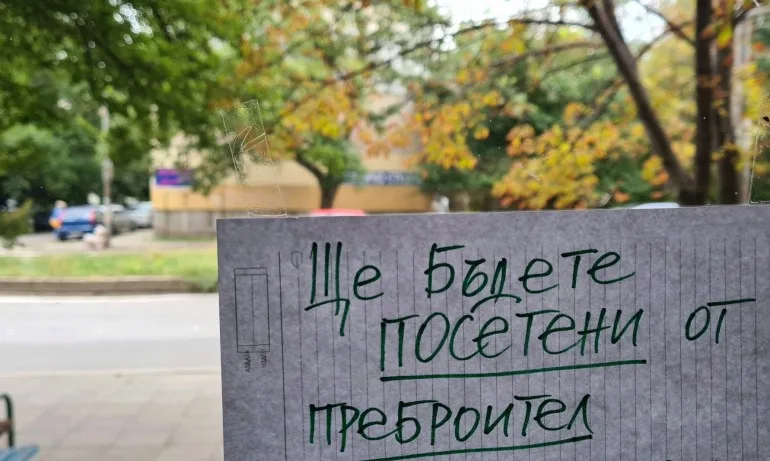 Ще бъдете
посетени от
преброител